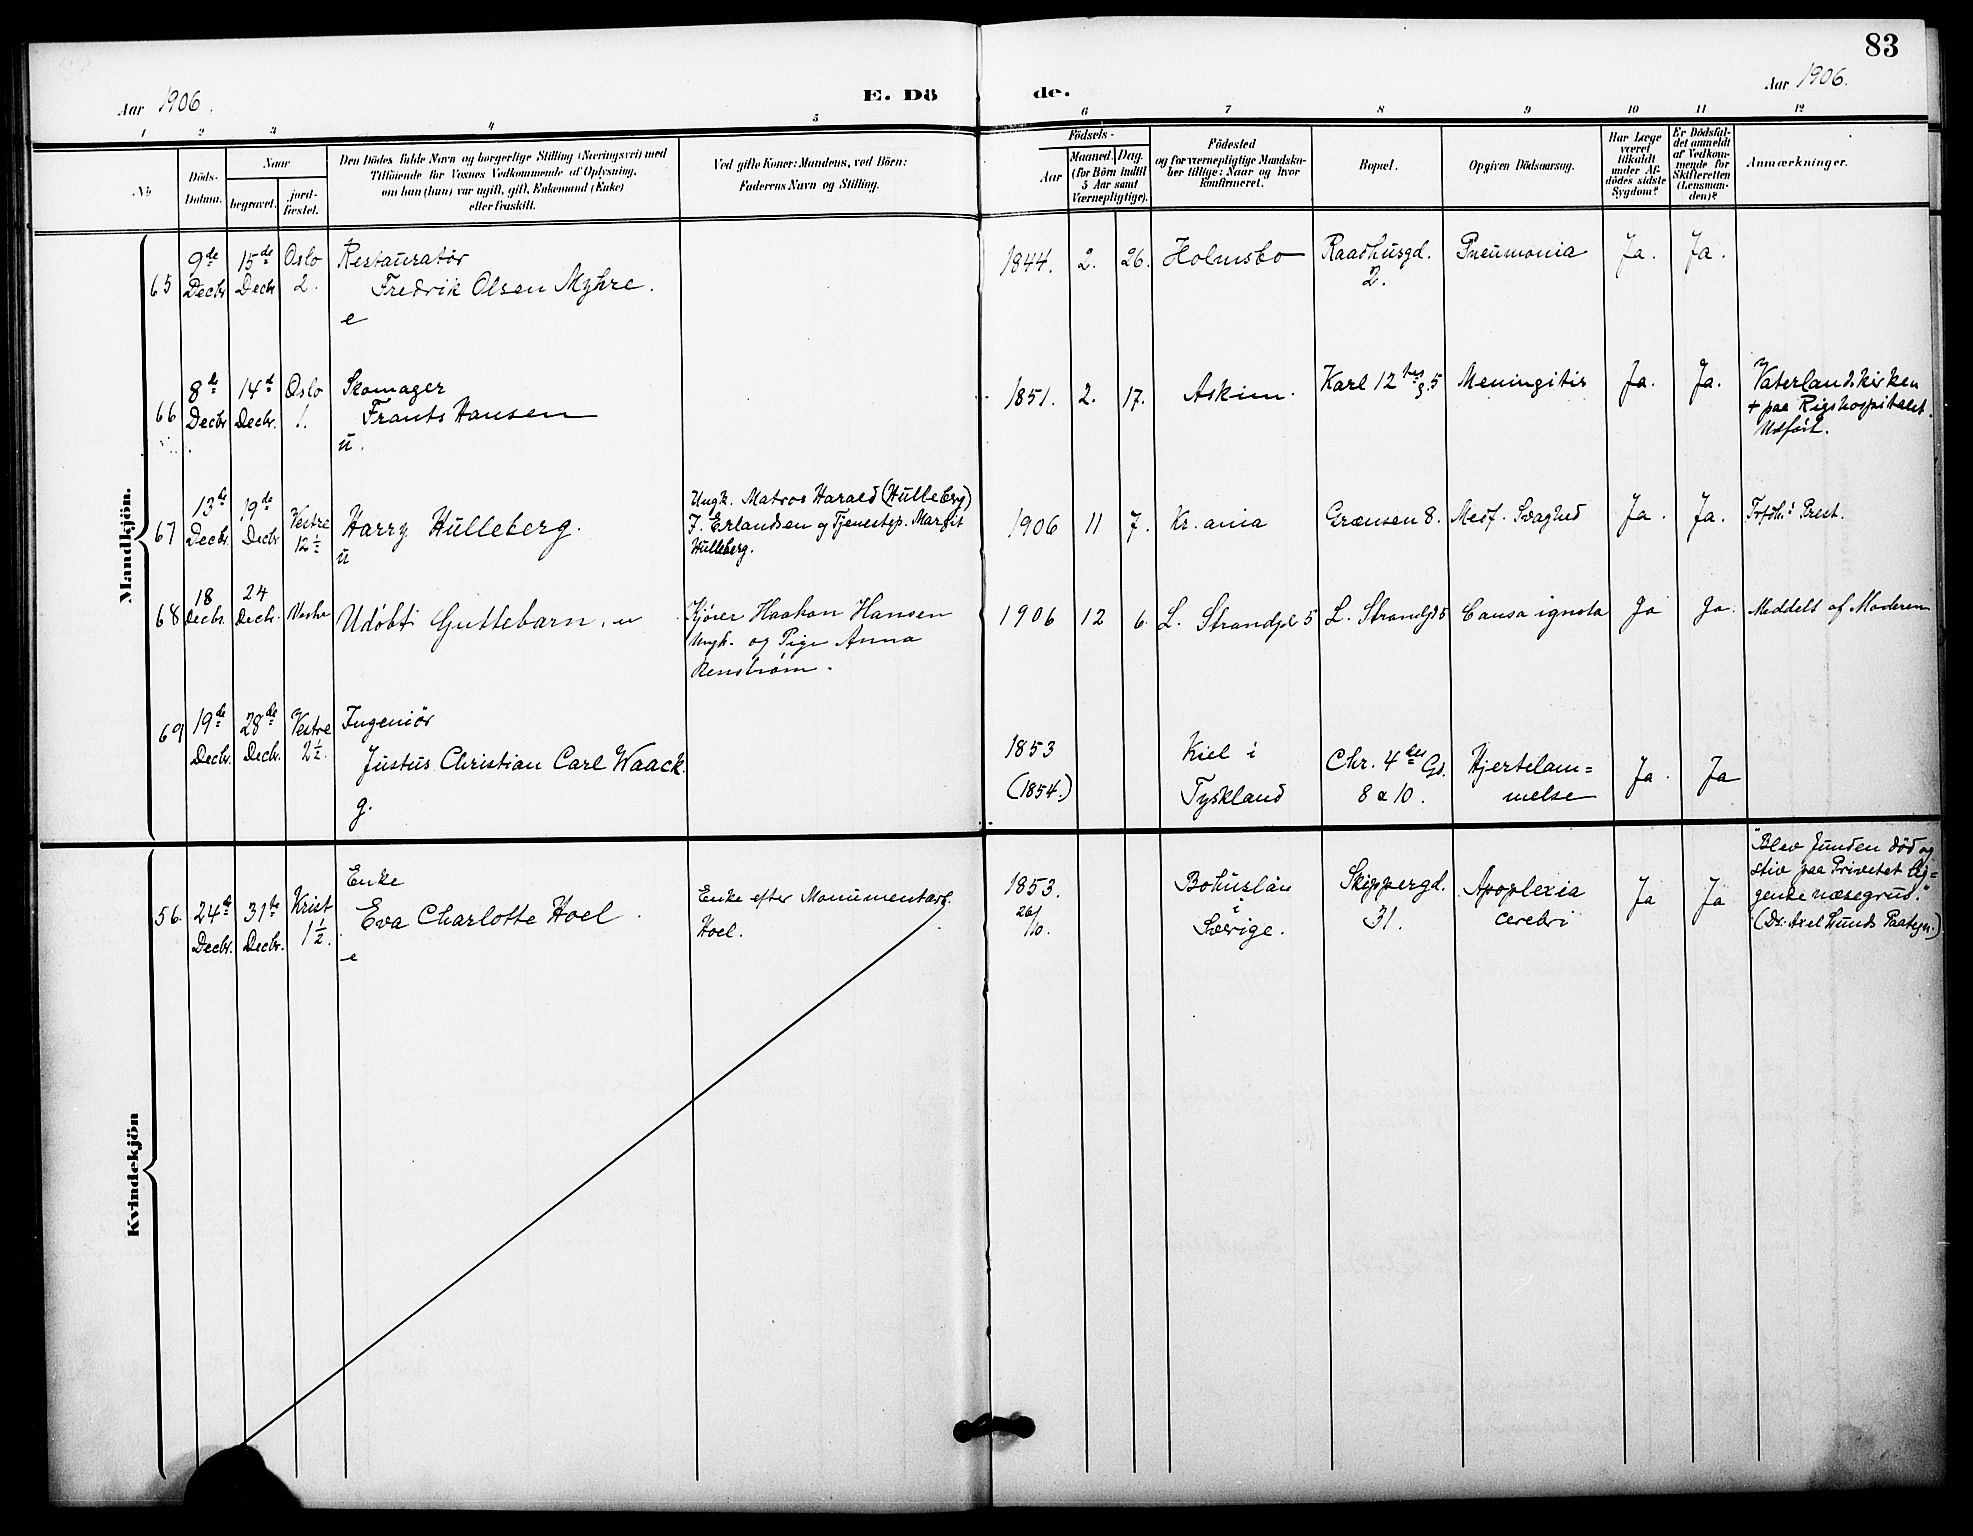 83
Aar 1906.
E. Dö de.
Aar 1906.
1 2 3 4 5 6 7 8 9 10 11 12
No
Döds-
Datum.
Naar
begravet.
jord-
fæstet.
Den Dödes fulde Navn og borgerlige Stilling (Næringsvei) med
Tilföiende for Voxnes Vedkommende af Oplysning,
om han (hun) var ugift, gift, Enkemand (Enke)
eller fraskilt.
Ved gifte Koner: Mandens, ved Börn:
Faderens Navn og Stilling.
Födsels-
Aar
Maaned. Dag.
(for Börn indtil
5 Aar samt
Værnepligtige).
Födested
og for værnepligtige Mandska-
ber tillige: Naar og hvor
konfirmeret.
Bopæl.
Opgiven Dödsaarsag.
Har Læge
været
tilkaldt
under Af-
dödes sidste
Sygdom?
Er Dödsfal-
det anmeldt
af Vedkom-
mende for
Skifteretten
(Lensman-
den)?
Anmærkninger.
Mandkjön.
65 9de Decbr 15de Decbr Oslo 2.
Restauratør
Fredrik Olsen Myhre.
e
1844. 2. 26. Holmsbo
Raadhusgd.
2.
Pneumonia Ja. Ja.
66 8de Decbr 14de Decbr. Oslo 1.
Skomager
Frants Hansen
u.
1851. 2. 17. Askim.
Karl 12tes g. 5
Meningitis Ja. Ja.
Vaterlandskirken
+ paa Rigshospitalet.
Udført.
67 13de Decbr. 19de Decbr. Vestre 12½
Harry Hulleberg.
u
Ungk. Matros Harald (Hulleberg)
J. Erlandsen og Tjenestep. Margit
Hulleberg.
1906 11 7. Kr.ania Grænsen 8. Medf. Svaghed Ja. Ja.
Prest.
68 18 Decbr. 24 Decbr. Vestre
Udøbt Guttebarn. u
Kjører Haakon Hansen
Ungk. og Pige Anna
Renström.
1906 12 6. L. Strandgd 5 L. Strandgd 5 Causa ignota Ja Ja. Meddelt af Moderen
69 19de Decbr. 28de Decbr. Vestre 2½.
Ingeniør
Justus Christian Carl Waack.
g.
1853
(1854.)
Kiel i
Tyskland
Chr. 4des Gd.
8 & 10.
Hjertelam=
melse
Ja. Ja
Kvindekjön
56. 24de Decbr. 31te Decbr. Krist 1½
Enke
Eva Charlotte Hoel.
e
Enke efter Monumentarb.
Hoel.
1853.
26/10.
Bohuslän
i
Sverige.
Skippergd.
31.
Apoplexia
cerebri
Ja Ja
"Blev funden död og
stiv paa Privetet lig=
gende næsegrus."
(Dr. Axel Lunds Paategn.)